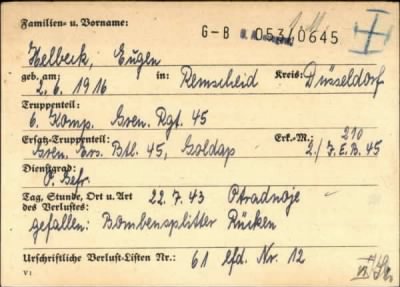 Familien- u. Vorname:
G-B 053/0645
Helbeck, Eugen
geb. am: in: Kreis:
2.6.1916 Remscheid Düsseldorf
Truppenteil:
6. Komp. Gren. Rgt. 45
Ersatz-Truppenteil: Erk.-M.: 210
Gren. Ers. Btl. 45, Goldap 2./J.E.B. 45
Dienstgrad:
O. Gefr.
Tag, Stunde, Ort u. Art
des Verlustes: 22.7.43 Otradnoje
gefallen: Bombensplitter Rücken
Urschriftliche Verlust-Listen Nr.: 61 lfd. Nr. 12
V1